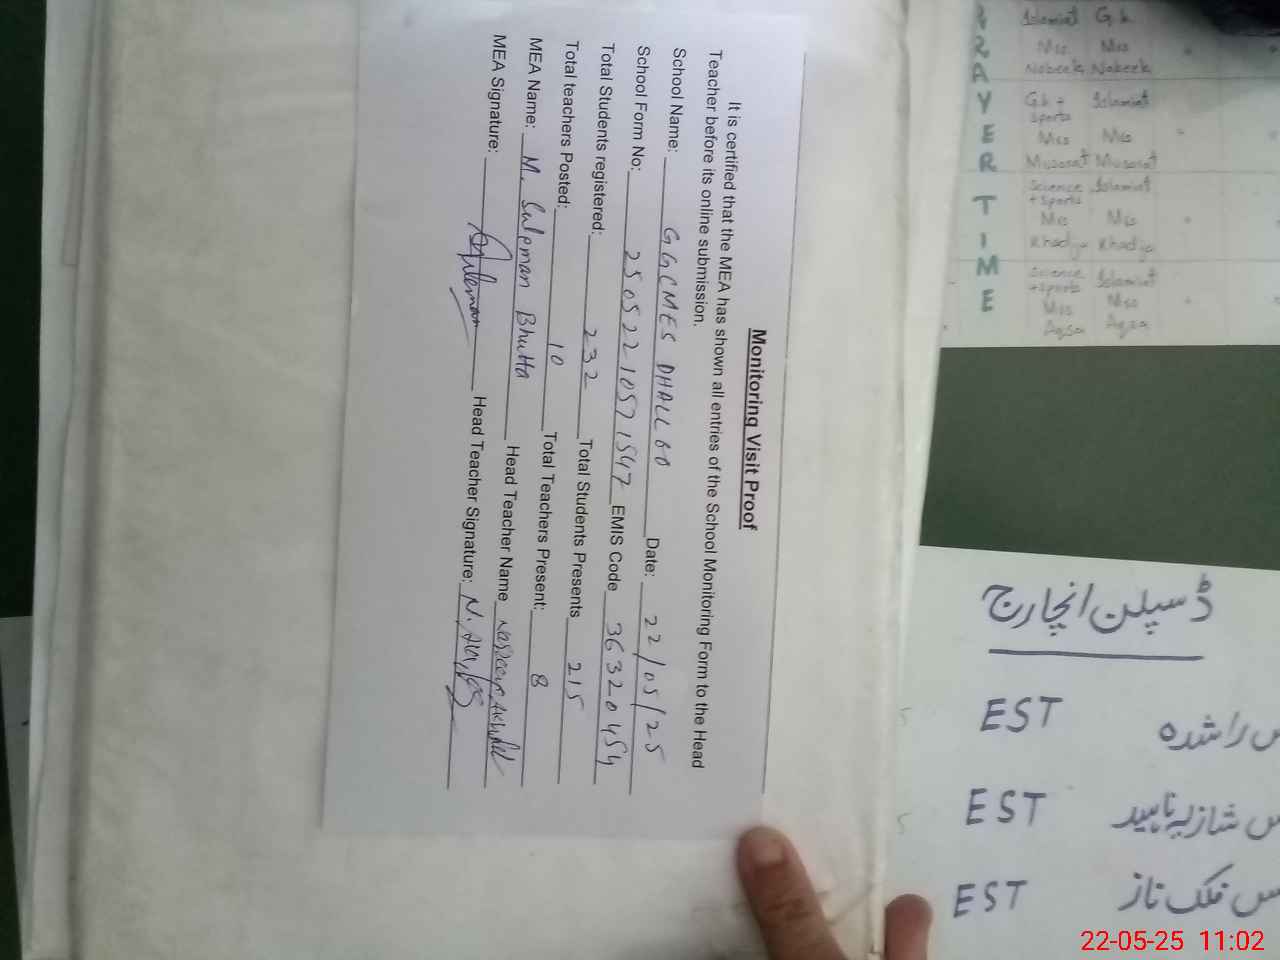 Monitoring Visit Proof
It is certified that the MEA has shown all entries of the School Monitoring Form to the Head
Teacher before its online submission.
School Name: GGCMES DHALLOO Date: 22/05/25
School Form No: 25052210571547 EMIS Code 36320454
Total Students registered: 232 Total Students Presents 215
Total teachers Posted: 10 Total Teachers Present: 8
MEA Name: M. Suleman Bhutta Head Teacher Name Naseem Akhtar
MEA Signature: Suleman Head Teacher Signature: N.
PRAYER TIME
Islamiat G.k
Mis Mis
Nabeela Nabeela
G.k + Islamiat
Sports
Mis Mis
Musarat Musarat
Science Islamiat
+ Sports
Mis Mis
Khadija Khadija
Science Islamiat
+ Sports
Mis Mis
Aqsa Aqsa
ڈسپلن انچارج
مس راشدہ EST
مس شازیہ ناہید EST
مس فلک ناز EST
22-05-25 11:02